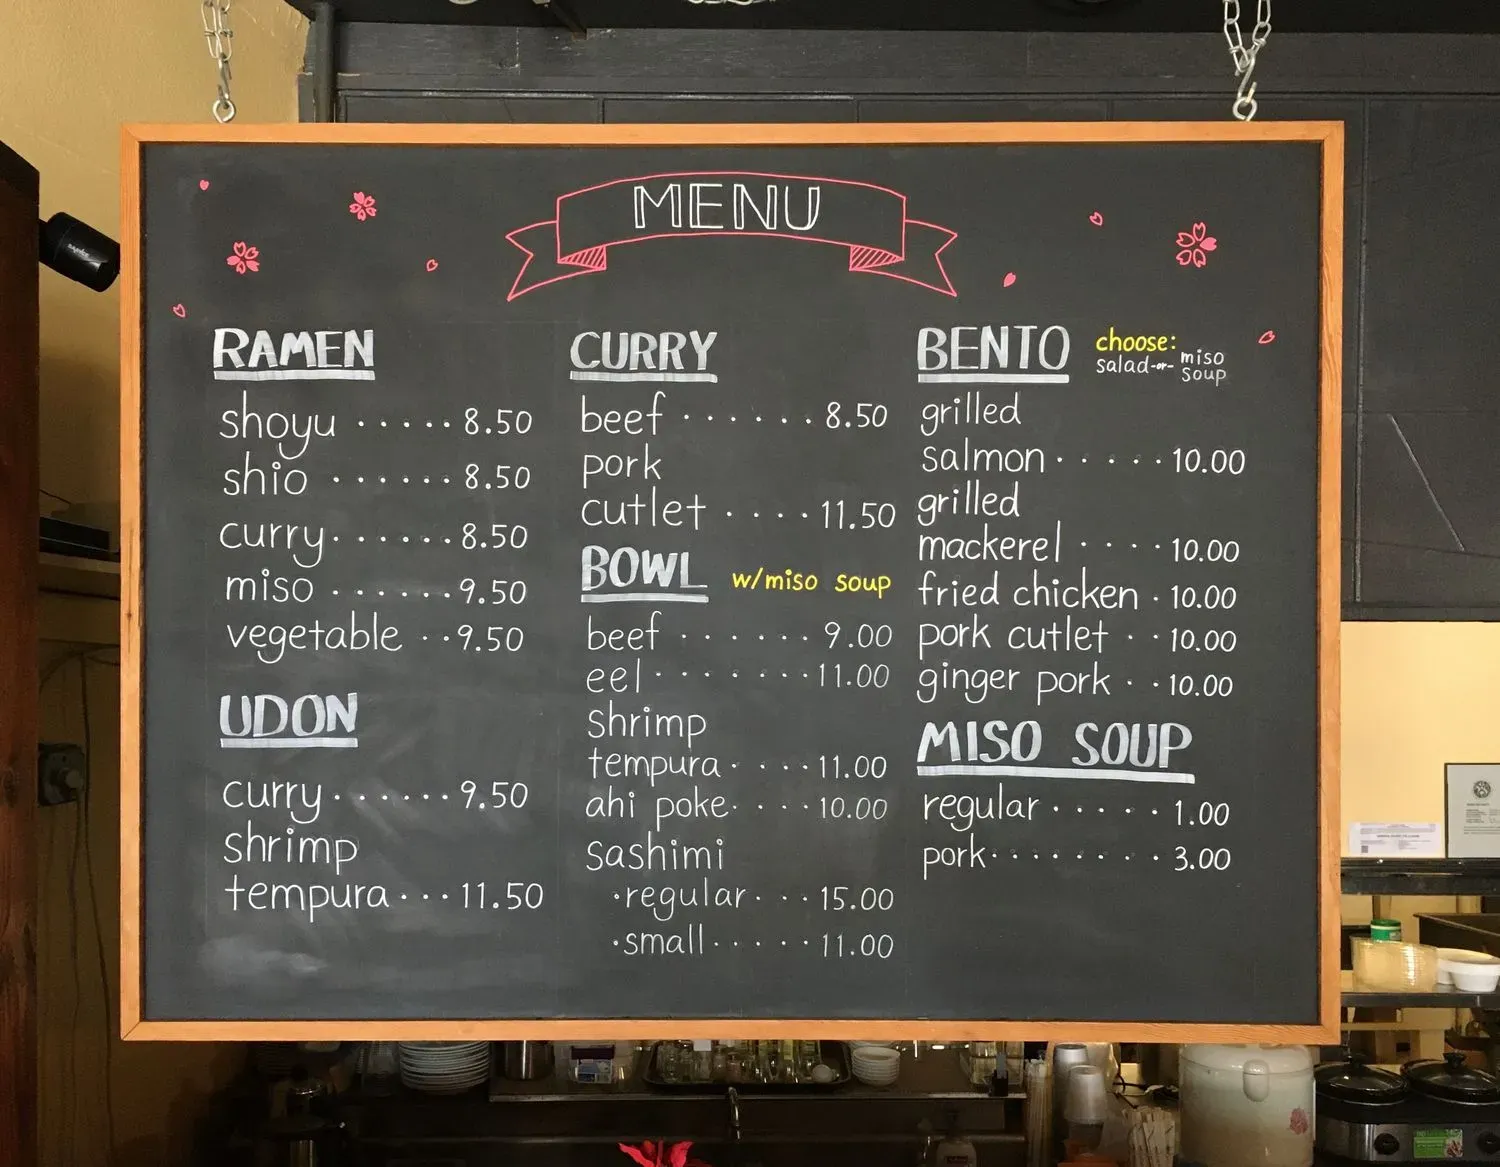 MENU
RAMEN
shoyu ..... 8.50
shio ...... 8.50
curry ...... 8.50
miso ...... 9.50
vegetable .. 9.50
UDON
curry ...... 9.50
shrimp
tempura ... 11.50
CURRY
beef ...... 8.50
pork
cutlet .... 11.50
BOWL w/miso soup
beef ...... 9.00
eel ....... 11.00
shrimp
tempura .... 11.00
ahi poke .... 10.00
sashimi
·regular ... 15.00
·small ..... 11.00
BENTO choose:
salad -or- miso
soup
grilled
salmon ..... 10.00
grilled
mackerel .... 10.00
fried chicken . 10.00
pork cutlet .. 10.00
ginger pork .. 10.00
MISO SOUP
regular ..... 1.00
pork ........ 3.00